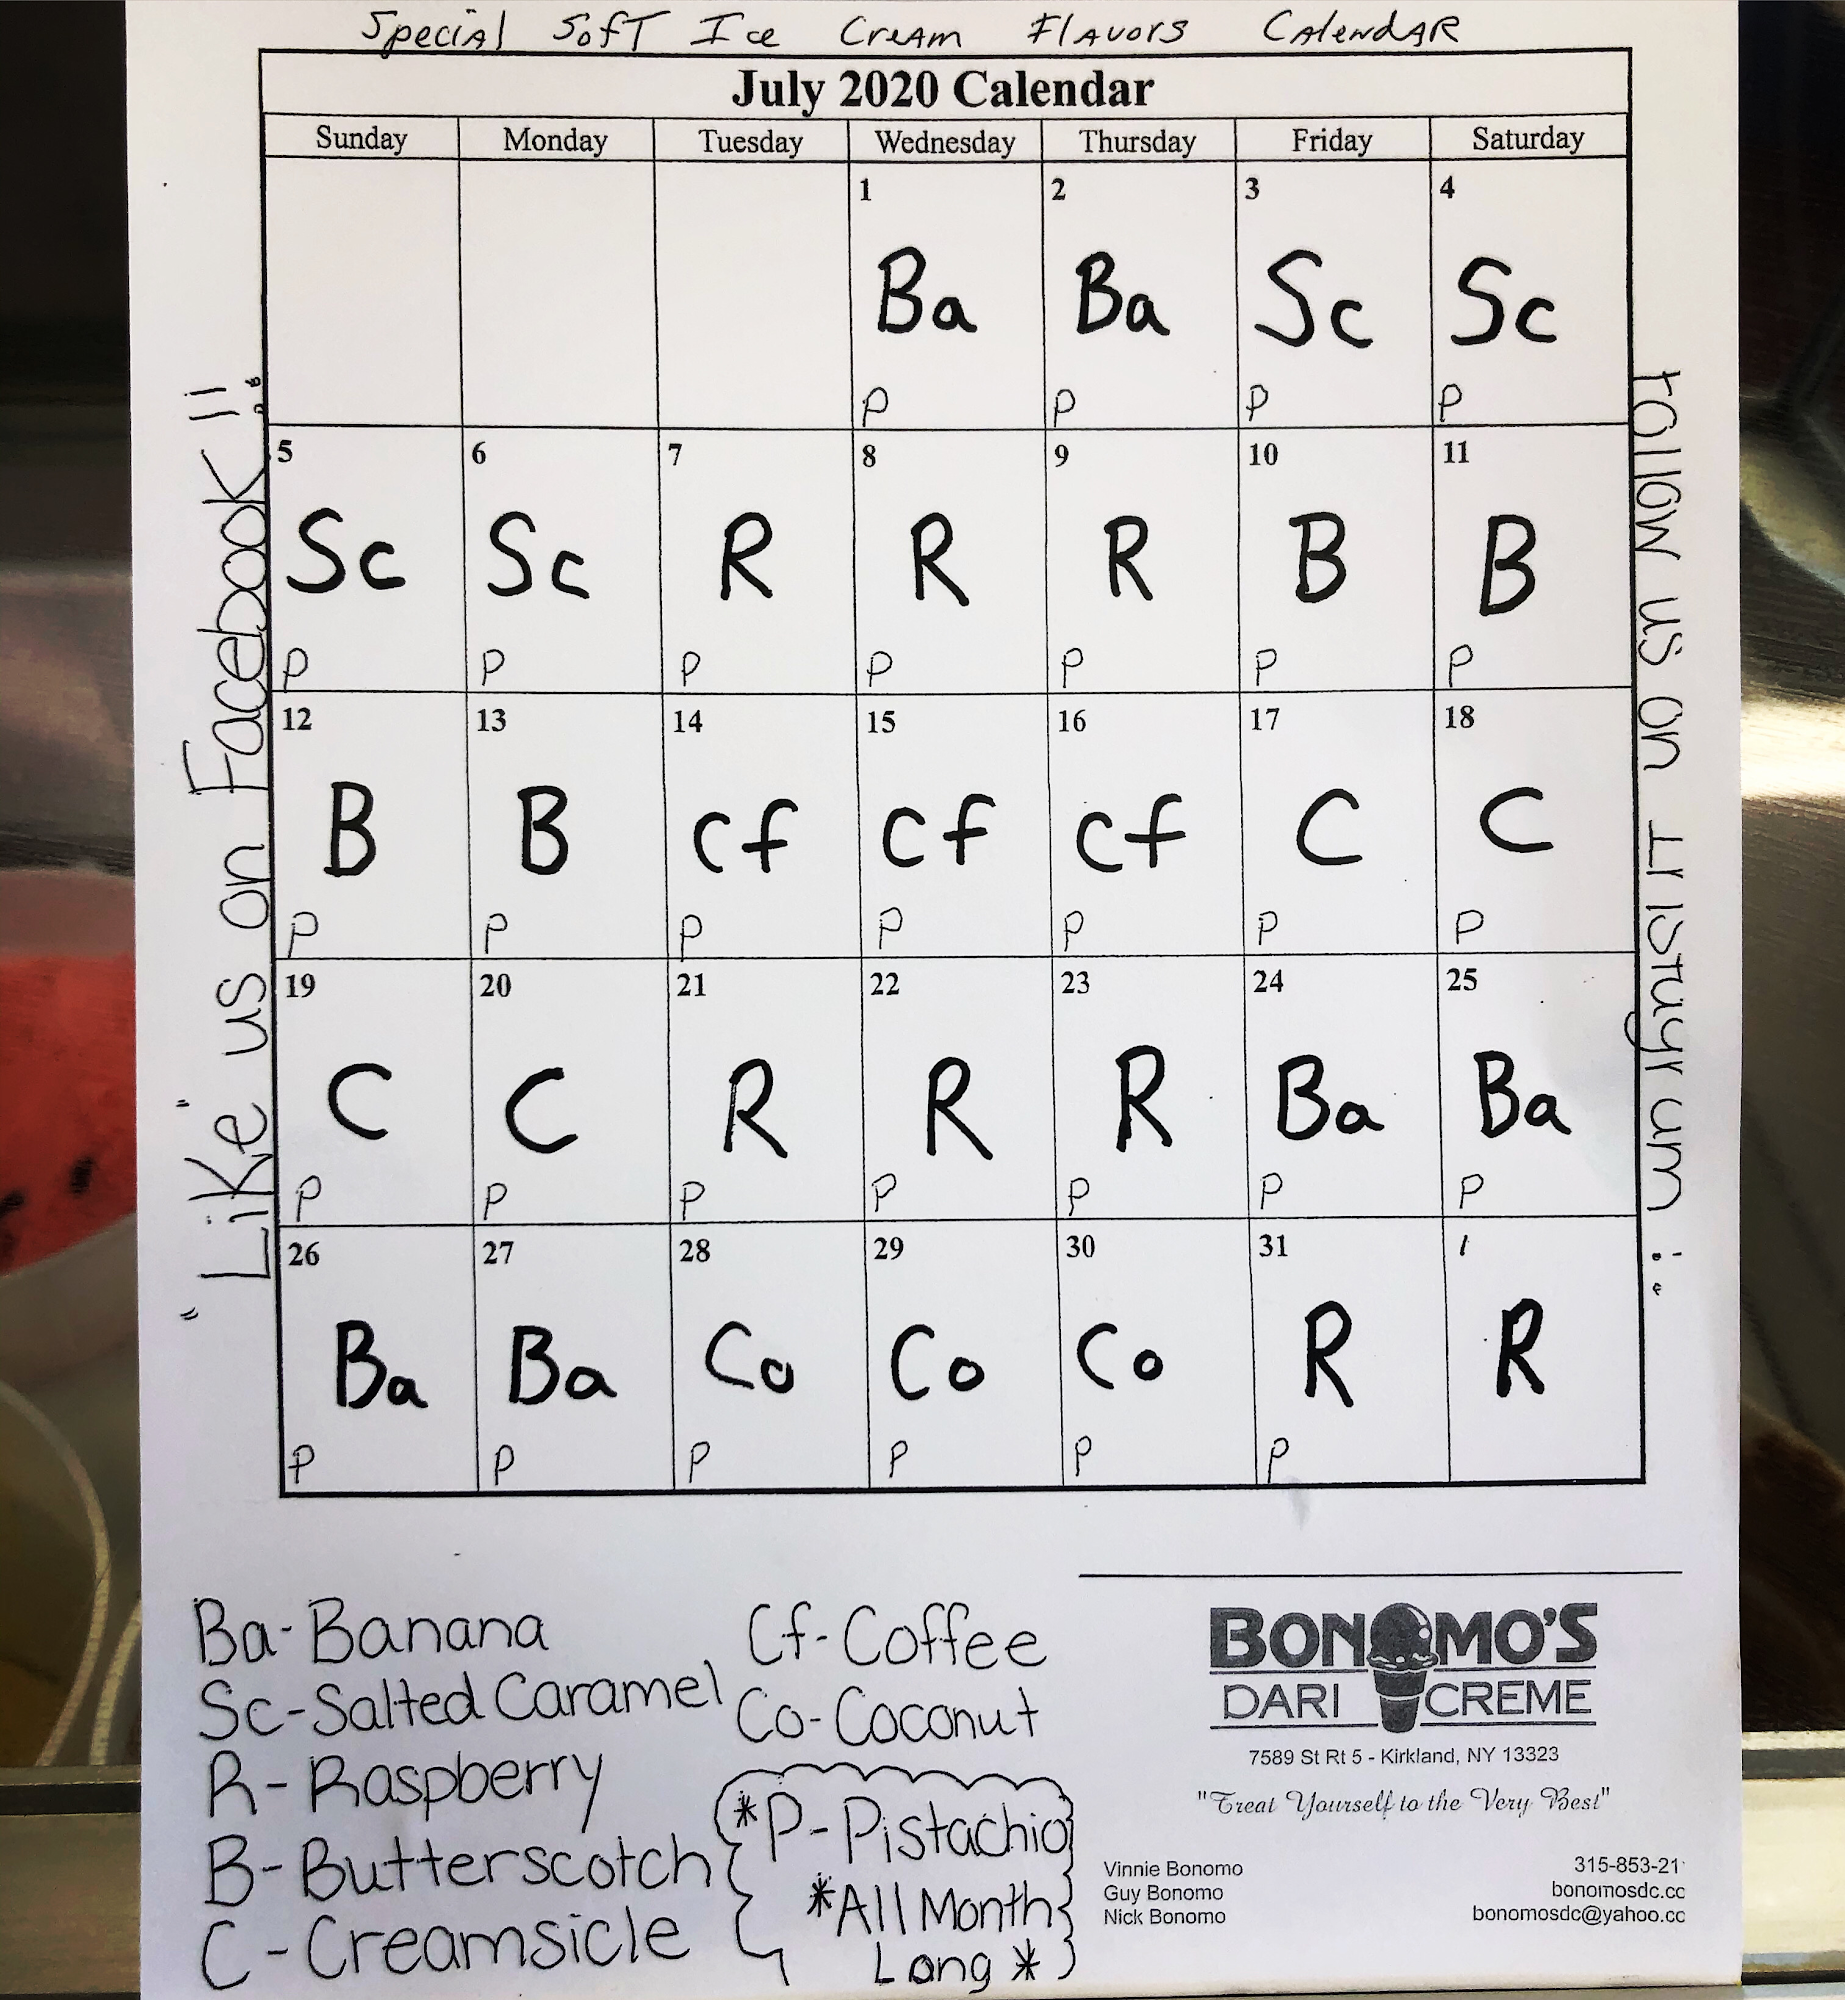 Special Soft Ice Cream Flavors Calendar
July 2020 Calendar
Sunday Monday Tuesday Wednesday Thursday Friday Saturday
1 2 3 4
Ba Ba Sc Sc
P P P P
5 6 7 8 9 10 11
Sc Sc R R R B B
P P P P P P P
12 13 14 15 16 17 18
B B Cf Cf Cf C C
P P P P P P P
19 20 21 22 23 24 25
C C R R R Ba Ba
P P P P P P P
26 27 28 29 30 31 1
Ba Ba Co Co Co R R
P P P P P P
"Like" us on Facebook!!
Follow us on Instagram
Ba- Banana
Sc-Salted Caramel
R- Raspberry
B- Butterscotch
C - Creamsicle
Cf- Coffee
Co- Coconut
*P- Pistachio
*All Month
Long *
BONOMO'S
DARI CREME
7589 St Rt 5 - Kirkland, NY 13323
"Treat Yourself to the Very Best"
Vinnie Bonomo
Guy Bonomo
Nick Bonomo
315-853-21
bonomosdc.cc
bonomosdc@yahoo.cc